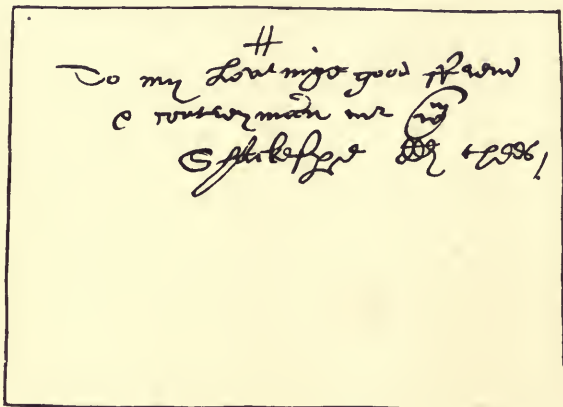 H
To my Loveinge good ffrend
& contreymann mr wm
Shackespe dlr thees